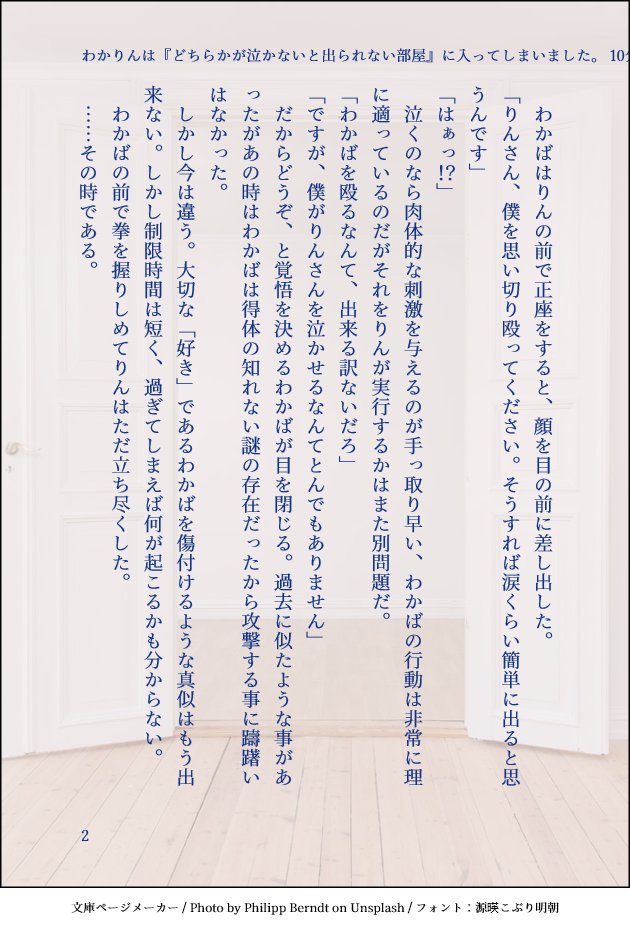 わかりんは『どちらかが泣かないと出られない部屋』に入ってしまいました。10
わかばはりんの前で正座をすると、顔を目の前に差し出した。
「りんさん、僕を思い切り殴ってください。そうすれば涙くらい簡単に出ると思
うんです」
「はぁっ!?」
泣くのなら肉体的な刺激を与えるのが手っ取り早い、わかばの行動は非常に理
に適っているのだがそれをりんが実行するかはまた別問題だ。
「わかばを殴るなんて、出来る訳ないだろ」
「ですが、僕がりんさんを泣かせるなんてとんでもありません」
だからどうぞ、と覚悟を決めるわかばが目を閉じる。過去に似たような事があ
ったがあの時はわかばは得体の知れない謎の存在だったから攻撃する事に躊躇い
はなかった。
しかし今は違う。大切な「好き」であるわかばを傷付けるような真似はもう出
来ない。しかし制限時間は短く、過ぎてしまえば何が起こるかも分からない。
わかばの前で拳を握りしめてりんはただ立ち尽くした。
……その時である。
2
文庫ページメーカー / Photo by Philipp Berndt on Unsplash / フォント：源暎こぶり明朝